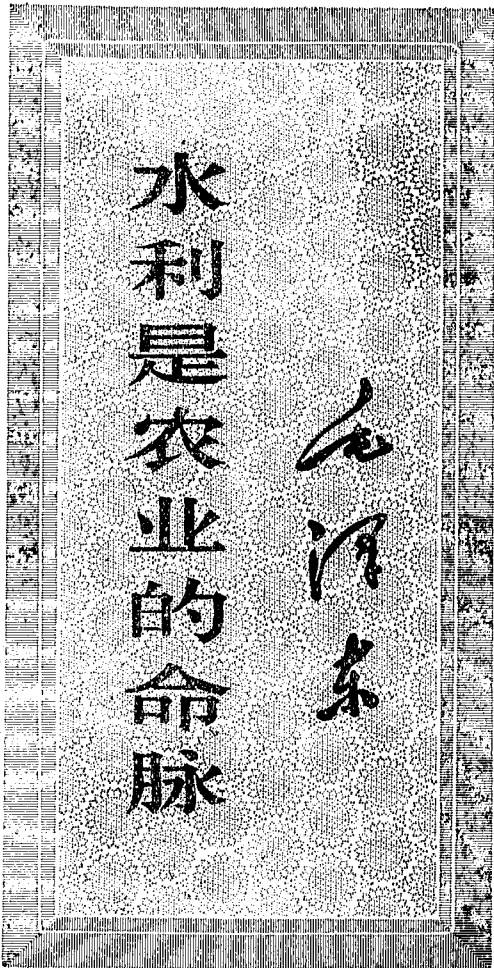 水利是农业的命脉
毛泽东